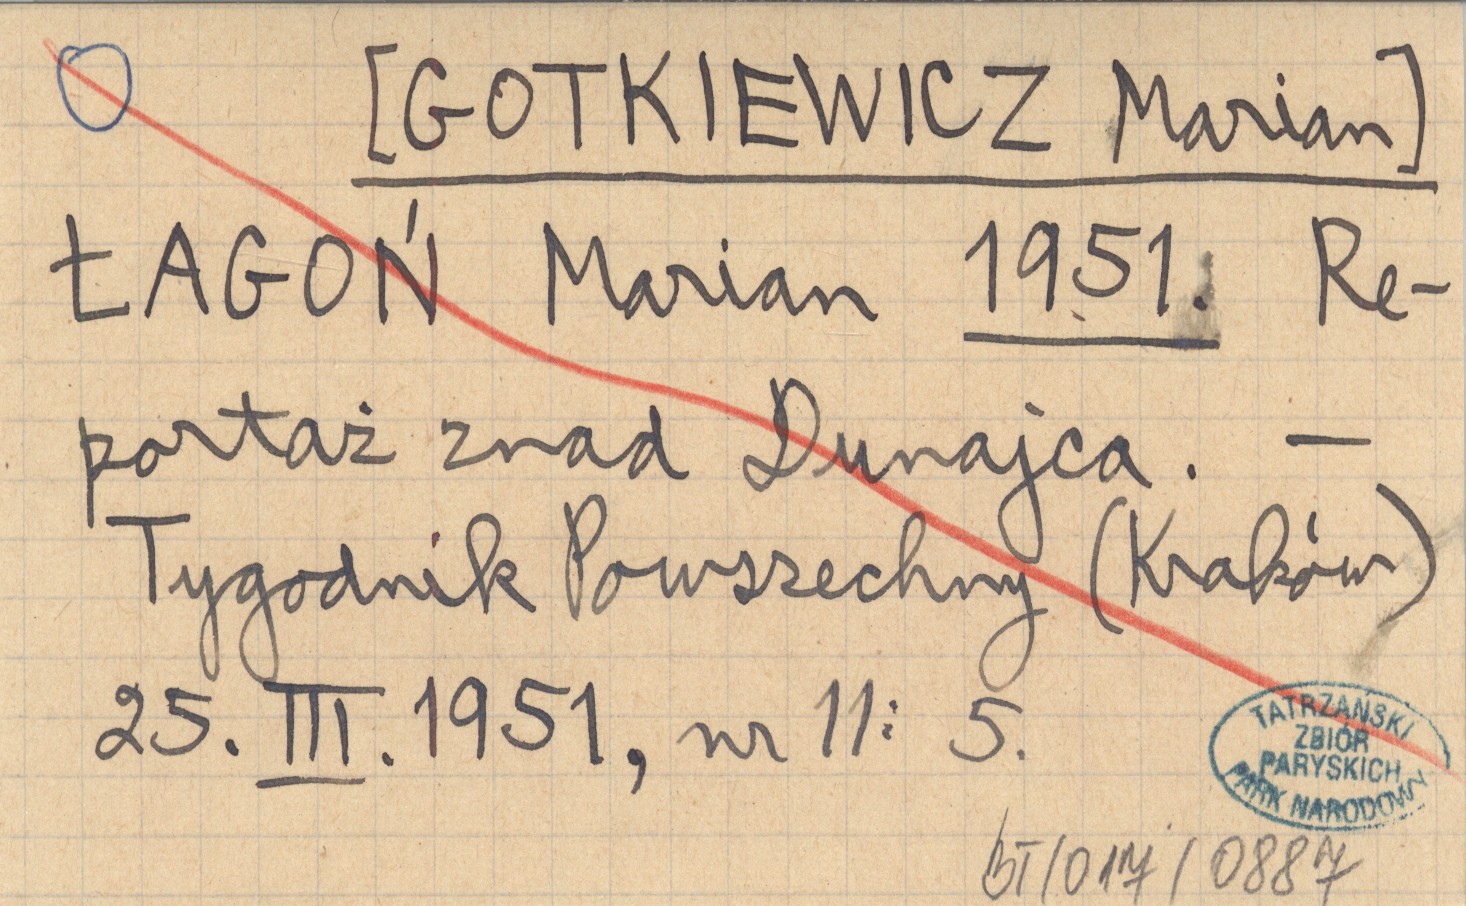 [GOTKIEWICZ Marian]
ŁAGOŃ Marian 1951. Re-
portaż znad Dunajca. —
Tygodnik Powszechny (Kraków)
25. III. 1951, nr 11: 5.
TATRZAŃSKI
ZBIÓR
PARYSKICH
PARK NARODOWY
BT/017/0887